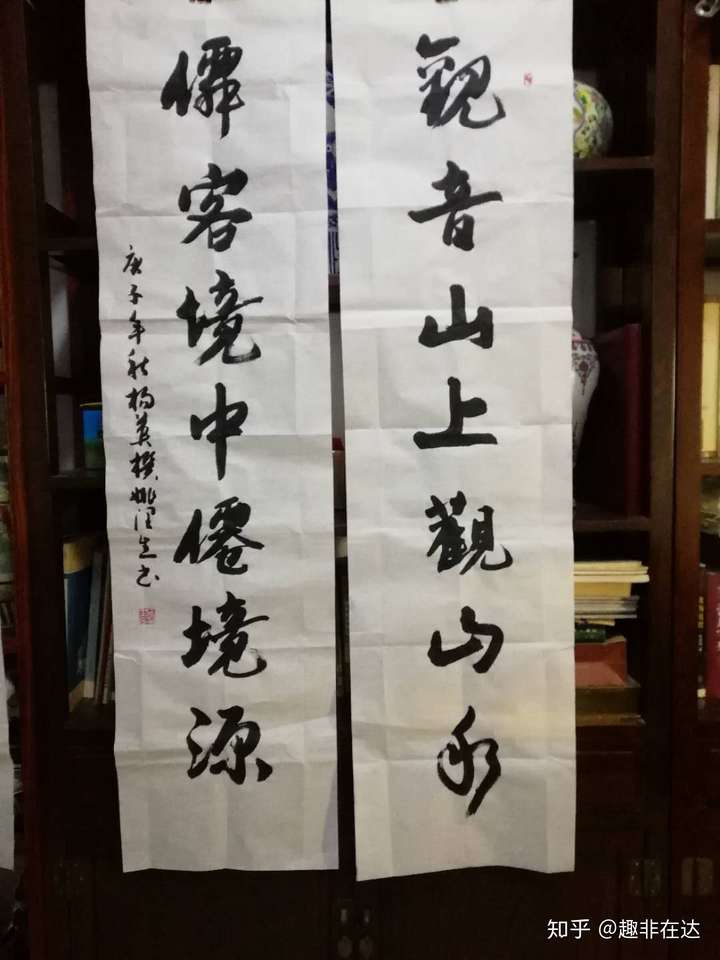 觀音山上觀山水
僊客境中僊境源
庚子年秋杨英撰姚生书
知乎 @趣非在达